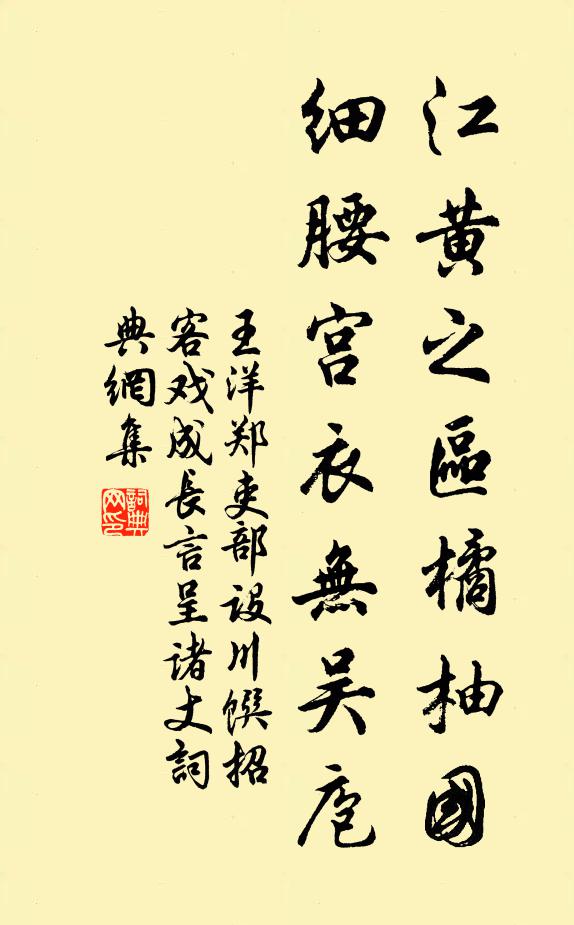 江黄之區橘柚國
細腰宫衣無吴庖
王洋郑吏部设川馔招
客戏成长言呈诸丈詞
典網集
詞典
网印